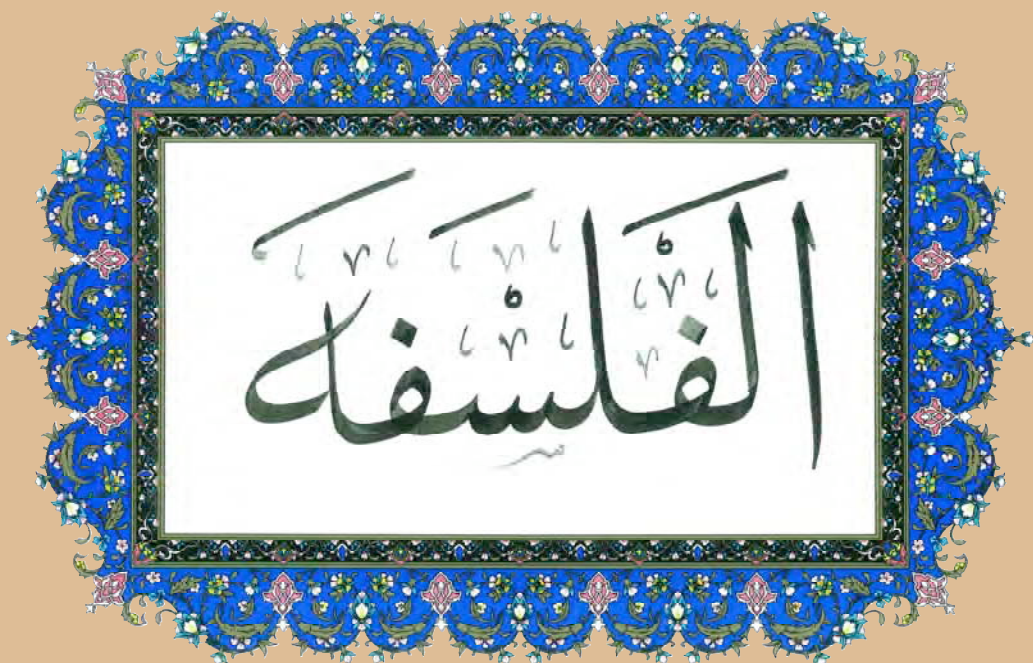 الْفَلْسَفَه